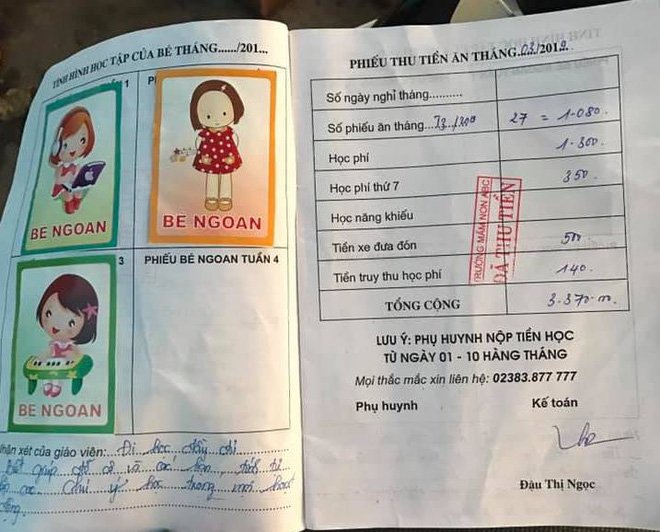 TÌNH HÌNH HỌC TẬP CỦA BÉ THÁNG....../201...
1
PHI
BÉ NGOAN
BÉ NGOAN
3
PHIẾU BÉ NGOAN TUẦN 4
BÉ NGOAN
hận xét của giáo viên: Đi học đầy đủ
giúp đỡ cô và các bạn
Chú ý học trong mọi hoạt
động.
PHIẾU THU TIỀN ĂN THÁNG 03/2019
Số ngày nghỉ tháng..........
Số phiếu ăn tháng 27 = 1.080
Học phí 1.300
Học phí thứ 7 350
Học năng khiếu
Tiền xe đưa đón 500
Tiền truy thu học phí 140
TỔNG CỘNG 3.370.
TRƯỜNG MẦM NON ABC
ĐÃ THU TIỀN
LƯU Ý: PHỤ HUYNH NỘP TIỀN HỌC
TỪ NGÀY 01 - 10 HÀNG THÁNG
Mọi thắc mắc xin liên hệ: 02383.877 777
Phụ huynh Kế toán
Đậu Thị Ngọc